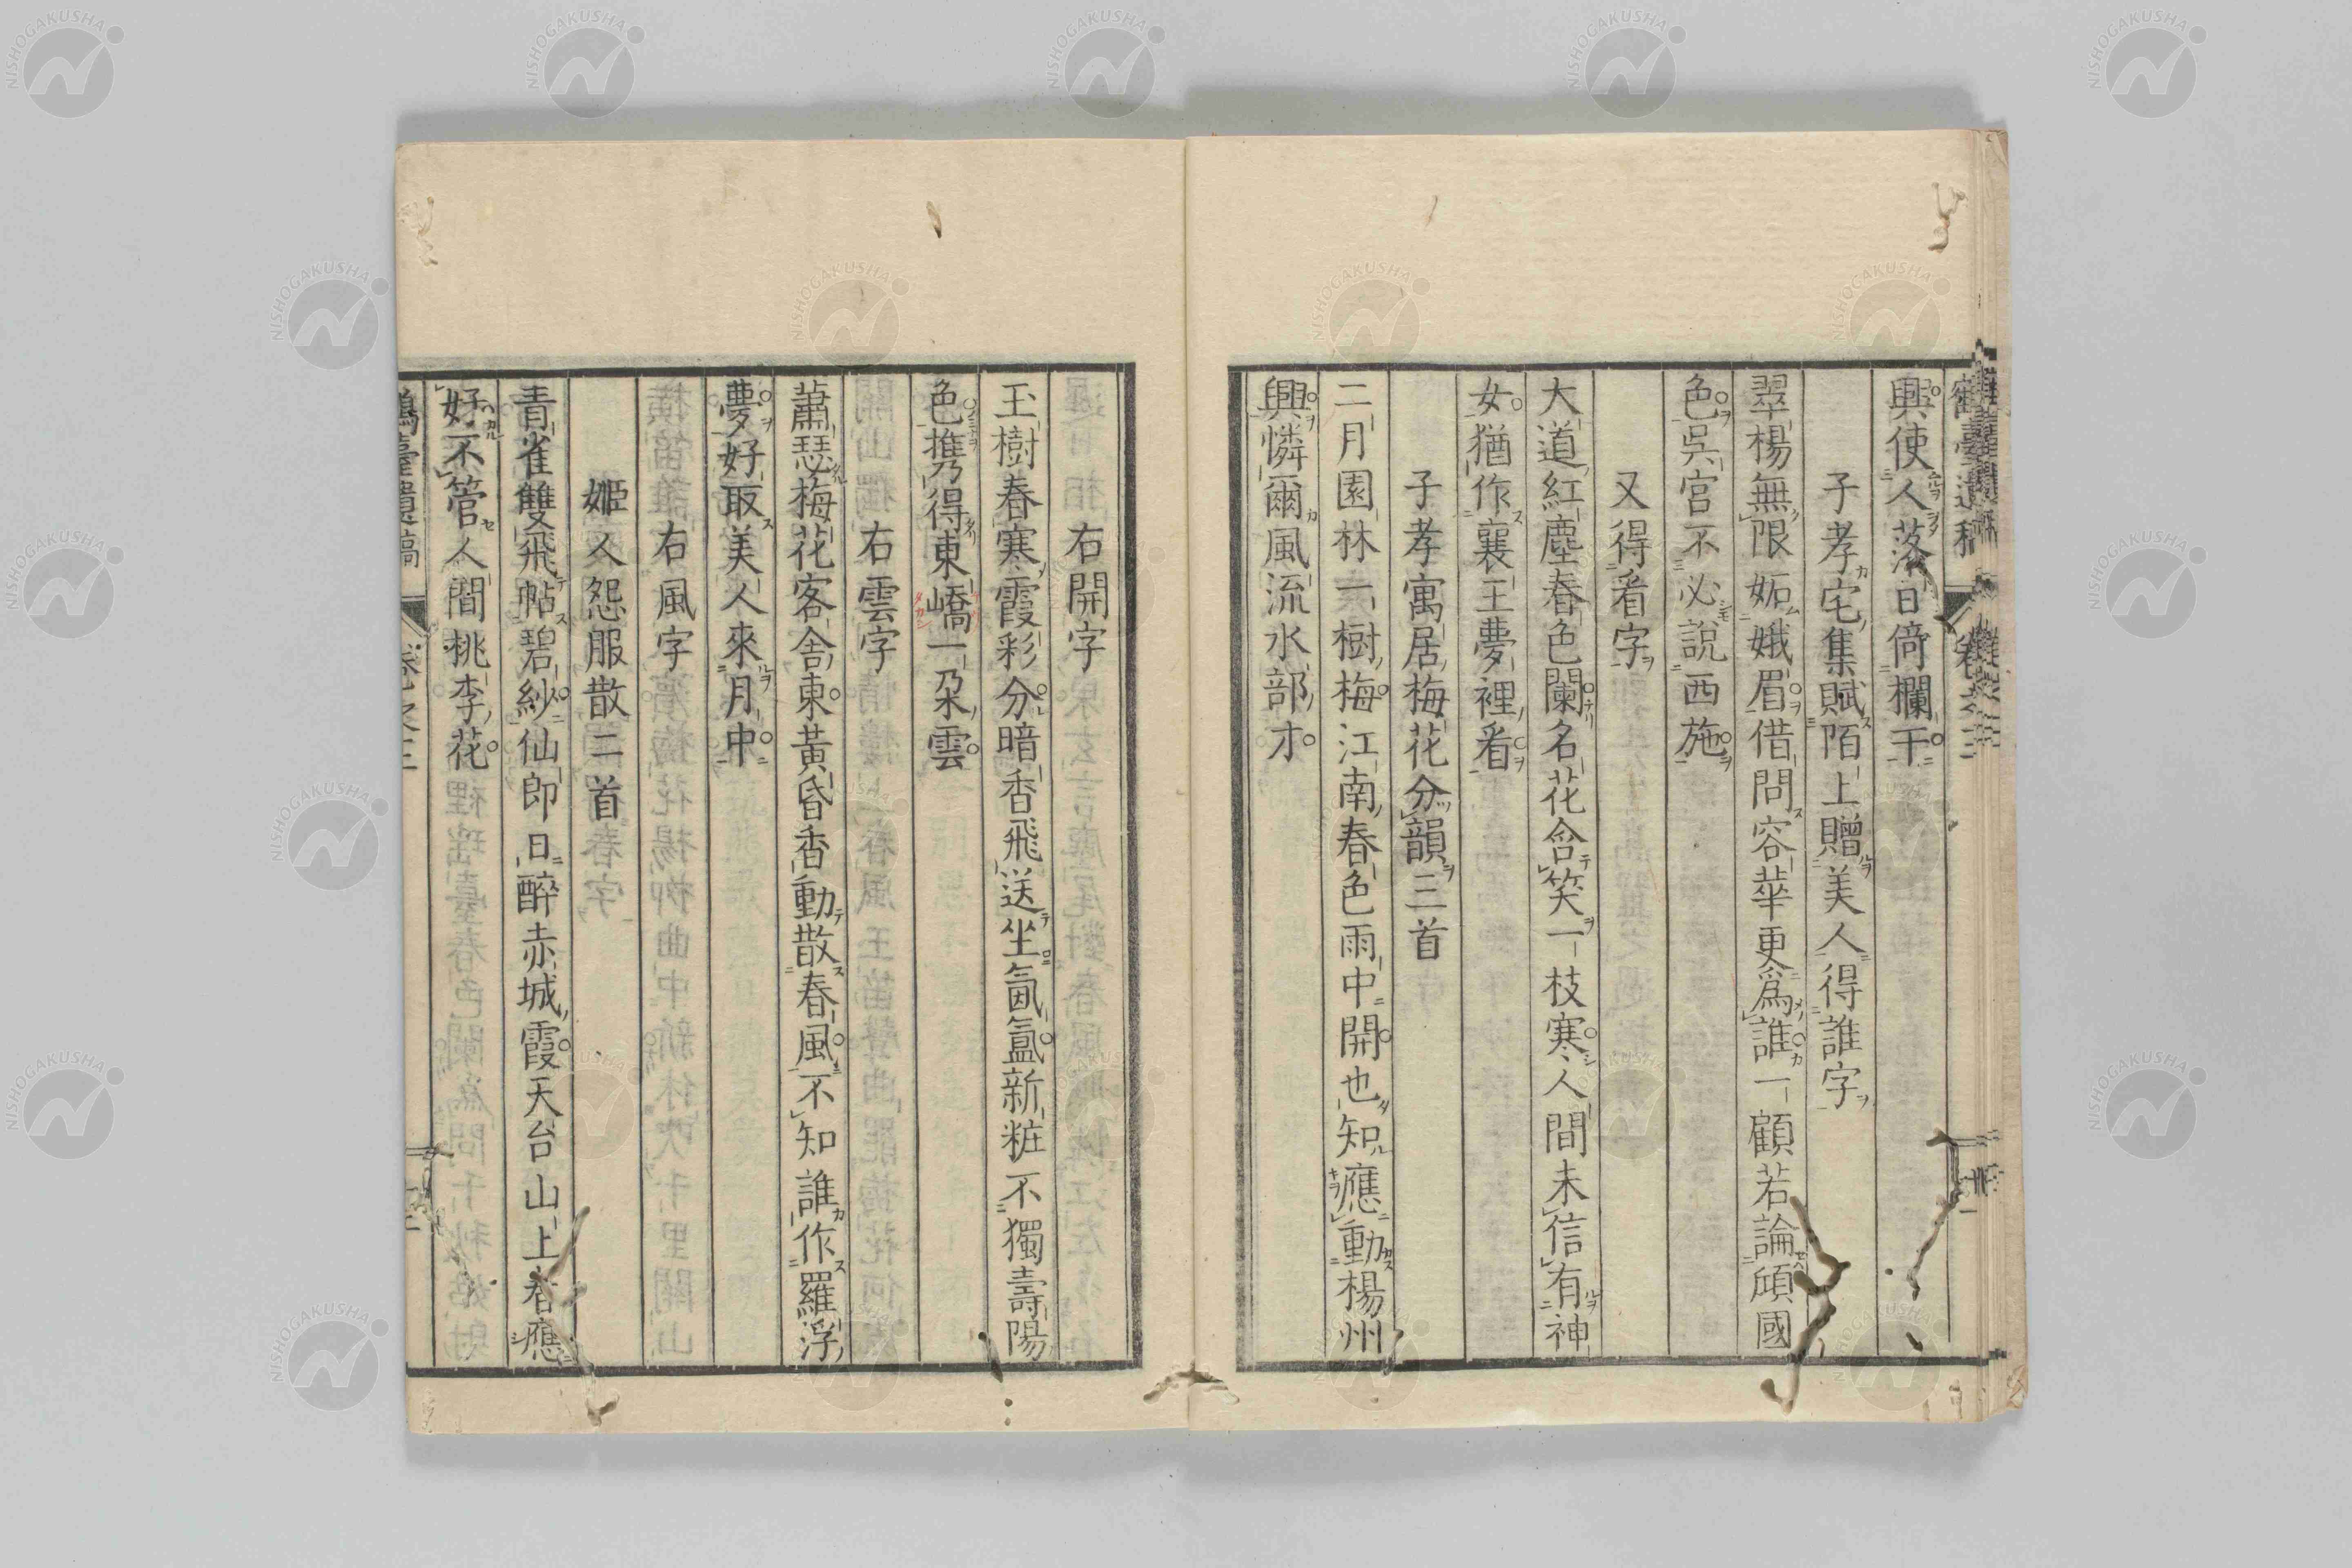 興使人落日倚欄干
子孝宅集賦陌上贈美人得誰字
翠楊無限妬娥眉借問容華更爲誰一顧若論傾國
色吳宮不必說西施
又得看字
大道紅塵春色闌名花含笑一枝寒人間未信有神
女猶作襄王夢裡看
子孝寓居梅花分韻三首
二月園林一樹梅江南春色雨中開也知應動楊州
興憐爾風流水部才
右開字
玉樹春寒霞彩分暗香飛送坐氤氳新粧不獨壽陽
色携得東嶠一朶雲
右雲字
蕭瑟梅花客舍東黃昏香動散春風不知誰作羅浮
夢好取美人來月中
右風字
姬人怨服散二首
青雀雙飛帖碧紗仙郎日醉赤城霞天台山上君應
好不管人間桃李花
NISHOGAKUSHA